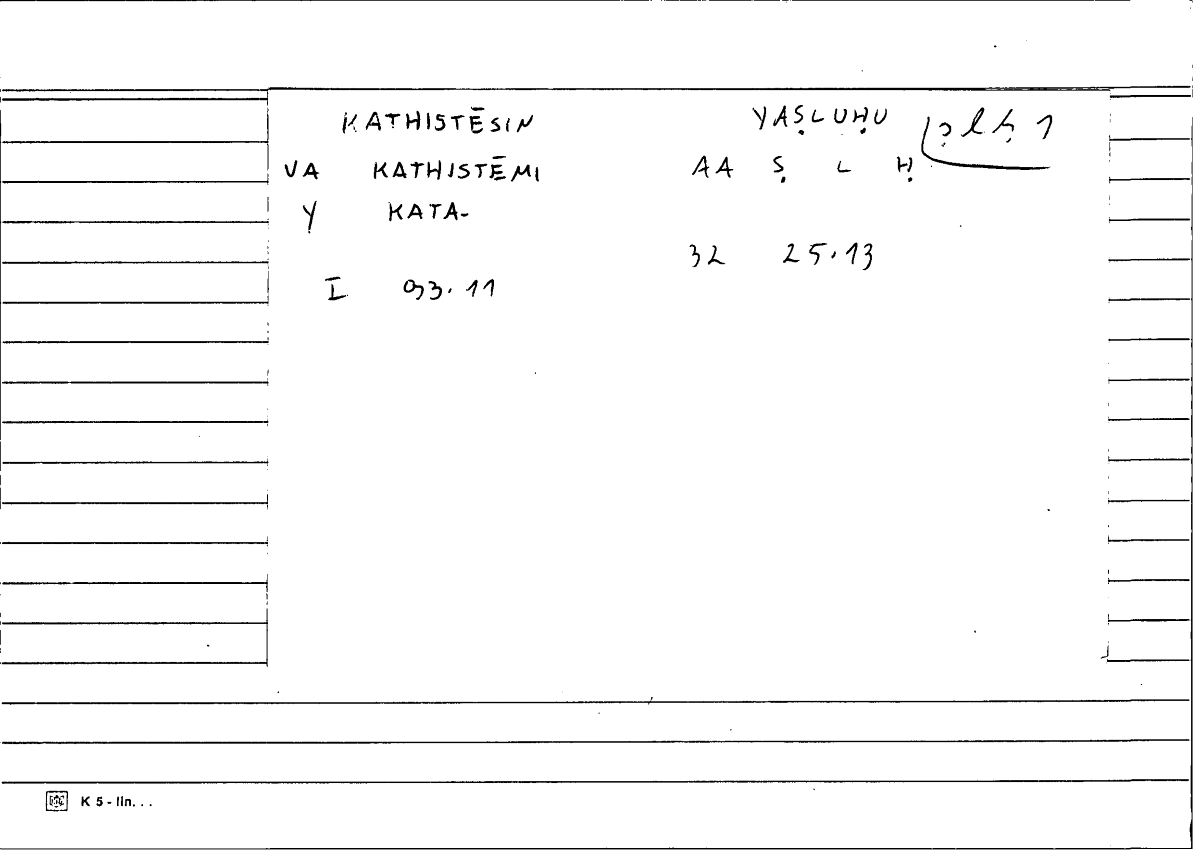 KATHISTĒSIN YAṢLUḤU ṣlḥ 1
VA KATHISTĒMI AA Ṣ L Ḥ
Y KATA-
32 25.13
I 93.11
K 5 - lin. . .